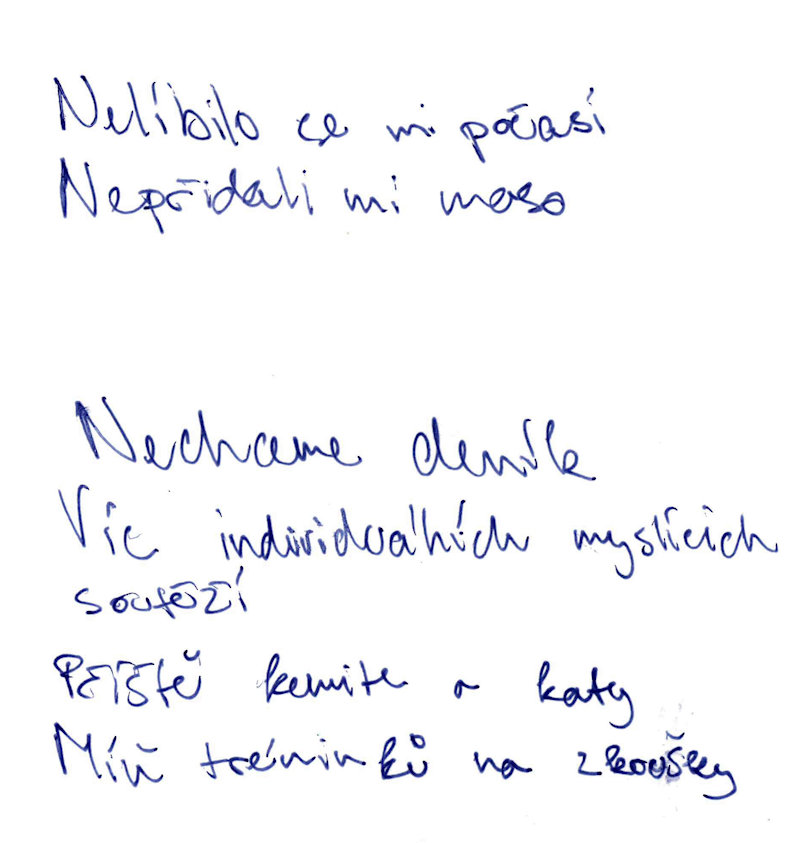 Nelíbilo se mi počasí
Nepřidali mi maso
Nechame deník
Víc individuálních myslících
soutěží
Příště kumite a katy
Míň tréninků na zkoušky